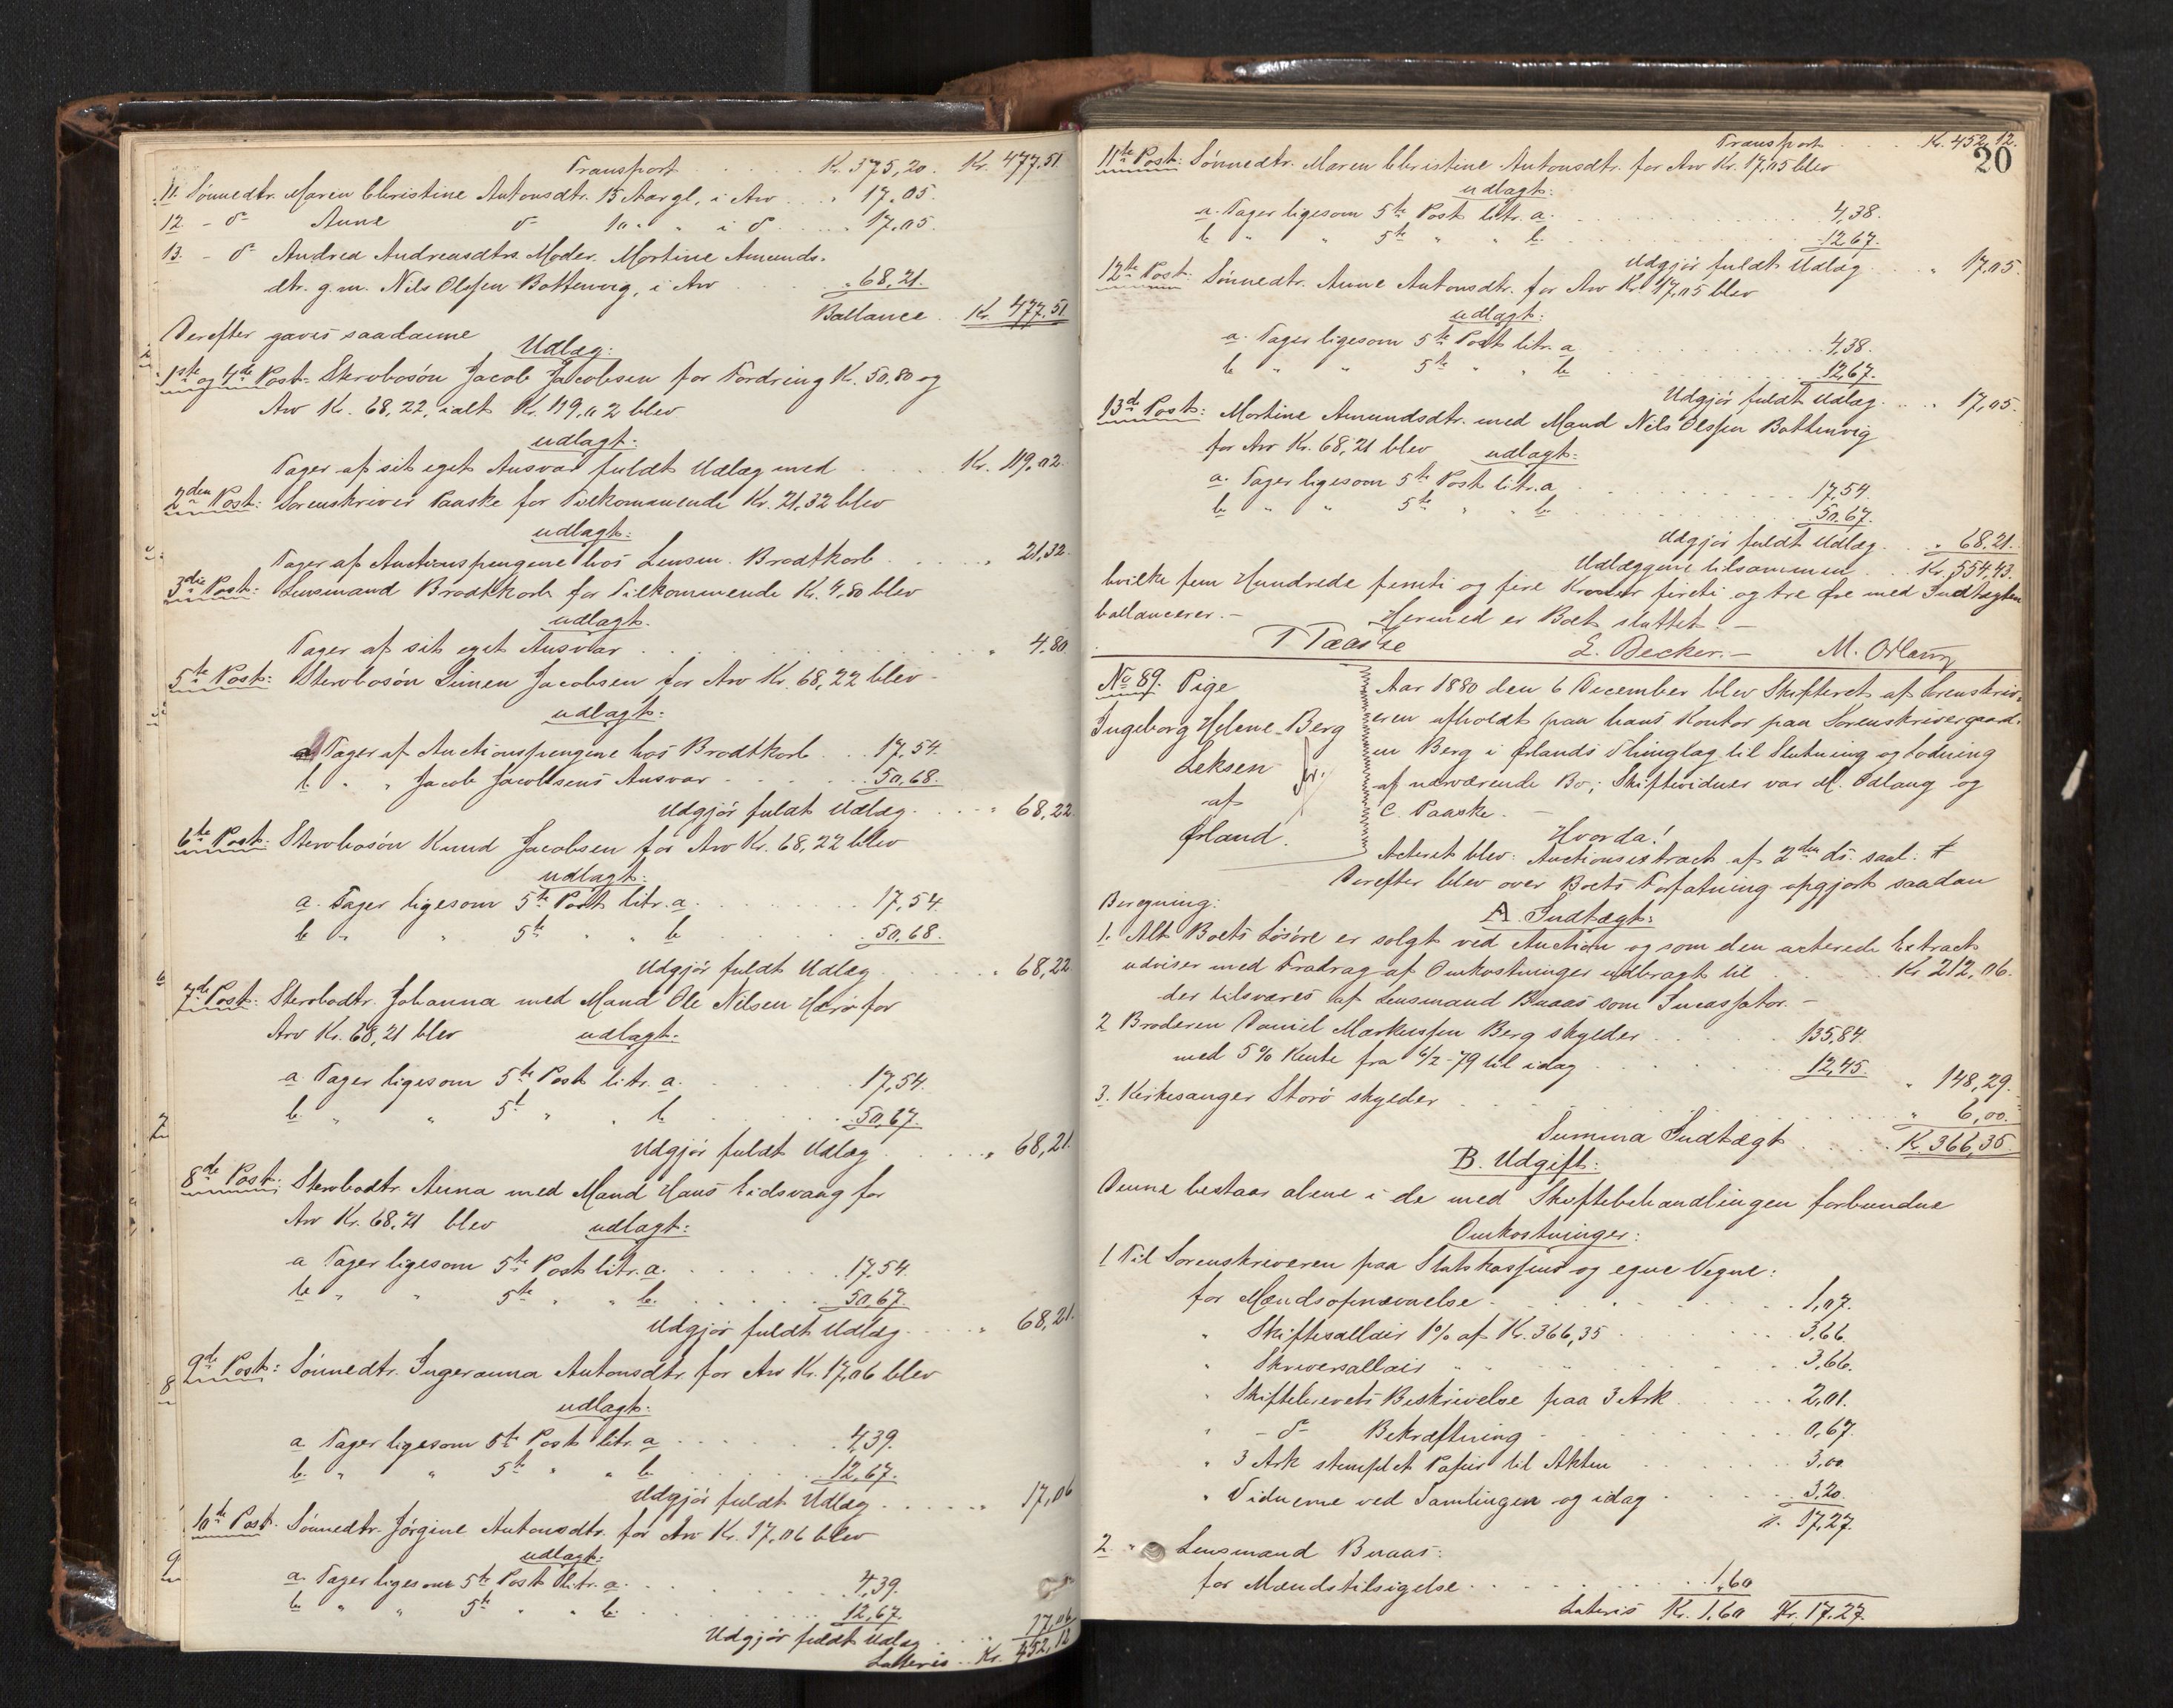 Transport . . . . Kr. 375,20. Kr. 477,51
11. Sønnedtr. Maren Christine Antonsdtr. 15 Aar gl., i Arv . . „ 17,05.
12. - do Anne do 10 „ „ i do . . . . „ 17,05.
13. - do Andrea Andreasdtrs. Moder. Martine Amunds-
dtr. g. m. Nils Olssen Bottenvig, i Arv . . . „ 68,21.
Ballance . Kr. 477,51
Derefter gaves saadanne
Udlæg:
1ste og 4de Post: Stervbosøn Jacob Jacobsen for Fordring Kr. 50,80 og
Arv Kr. 68,22, ialt Kr. 119,02 blev
udlagt:
Tager af sit eget Ansvar fuldt Udlæg med . . . . Kr. 119,02.
2den Post: Sorenskriver Paaske for Tilkommende Kr. 21,32 blev
udlagt:
Tager af Auctionspengene hos Lensm. Brodtkorb . . . . „ 21,32.
3die Post: Lensmand Brodtkorb for Tilkommende Kr. 4,80 blev
udlagt.
Tager af sit eget Ansvar . . . . . . . „ 4,80.
5te Post: Stervbosøn Simen Jacobsen for Arv Kr. 68,22 blev -
udlagt:
a Tager af Auctionspengene hos Brodtkorb . . . 17,54.
b. „ „ Jacob Jacobsens Ansvar - - - - . . 50,68.
Udgjør fuldt Udlæg. . . . „ 68,22
6te Post: Stervbosøn Knud Jacobsen for Arv Kr. 68,22 blev
udlagt:
a. Tager ligesom 5te Post litr. a. . . . . . . 17,54.
b „ „ 5te „ „ b . . . . . 50,68.
Udgjør fuldt Udlæg . . . . „ 68,22
7de Post: Stervbodtr. Johanna med Mand Ole Nilsen for
Arv Kr. 68,21 blev udlagt:
a Tager ligesom 5te Post litr. a. . . . . . 17,54.
b. „ „ 5t „ b . . . . . 50,67.
Udgjør fuldt Udlæg . . . . „ 68,21.
8de Post: Stervbodtr. Anna med Mand Hans Eidsvaag for
Arv Kr. 68,21 blev udlagt:
a Tager ligesom 5te Post litr. a. . . . . . 17,54.
b „ „ 5te „ „ b. . . . . . 50,67.
Udgjør fuldt Udlæg. . . . „ 68,21.
9de Post: Sønnedtr. Ingeranna Antonsdtr. for Arv Kr. 17,06 blev
udlagt:
a Tager ligesom 5te Post litr. a . . . . . 4,39.
b. „ „ 5te „ „ b . . . . . 12,67.
Udgjør fuldt Udlæg . . . . „ 17,06
10de Post: Sønnedtr. Jørgine Antonsdtr. for Arv Kr. 17,06 blev
udlagt:
a. Tager ligesom 5te Post litr. a. . . . . . 4,39.
b „ „ 5te „ „ b. . . . . 12,67.
Udgjør fuldt Udlæg . . . . 17,06
Lateris . . Kr. 452,12
Transport . . . . Kr. 452,12.
20
11te Post: Sønnedtr. Maren Christine Antonsdtr. for Arv Kr. 17,05 blev
udlagt:
a. Tager ligesom 5te Post litr. a. . . . . . 4,38.
b „ „ 5te „ „ b. . . . . . 12,67.
Udgjør fuldt Udlæg . . . „ 17,05.
12te Post: Sønnedtr. Anne Antonsdtr. for Arv Kr. 17,05 blev
udlagt:
a. Tager ligesom 5te Post litr. a . . . . . 4,38.
b „ „ 5te „ „ b. . . . . . 12,67.
Udgjør fuldt Udlæg. . . . „ 17,05.
13de Post: Martine Amundsdtr. med Mand Nils Olssen Bottenvig
for Arv Kr. 68,21 blev udlagt:
a. Tager ligesom 5te Post litr. a . . . . . 17,54.
b „ „ 5te „ „ b. . . . . . 50,67.
Udgjør fuldt Udlæg. . . „ 68,21.
Udlæggene tilsammen . . Kr. 554,43.
hvilke fem Hundrede femti og fire Kroner firti og tre Øre med Indtægten
ballancerer. - Hermed er Boet sluttet. -
T Paaske E. Decker. - M. Odlaug
No 89. Pige
Ingeborg Helene Berg
Leksen
af
Ørland.
Aar 1880 den 6 December blev Skifteret af Sorenskriv-
eren afholdt paa hans Kontor paa Sorenskrivergaard-
en Berg i Ørlands Thinglag til Slutning og Lodning
af nærværende Bo; Skiftevidner var M. Odlaug og
C. Paaske. -
Hvorda!
Acteret blev: Auctionsextract af 2den ds. saal: #
Derefter blev over Boets Forfatning opgjort saadan
Beregning:
A. Indtægt:
1. Alt Boets Løsøre er solgt ved Auction og som den acterede Extract
udviser med Fradrag af Omkostninger udbragt til . . . Kr. 212,06.
der tilsvares af Lensmand Buaas som Incassator. -
2 Broderen Daniel Markussen Berg skylder . . . . . 135,84.
med 5% Rente fra 6/2-79 til idag . . . . . 12,45.
„ 148,29.
3. Kirkesanger Storø skylder . . . . . . „ 6,00.
Summa Indtægt . . . . . K. 366,35
B. Udgift:
Denne bestaar alene i de med Skiftebehandlingen forbundne
Omkostninger:
1 Til Sorenskriveren paa Statskassens og egne Vegne:
for Mændsopnævnelse . . . . . . 1,07.
„ Skiftesallair 1% af Kr. 366,35 . . . . . 3,66.
„ Skriversallair „ „ „ . . . 3,66.
„ Skiftebrevets Beskrivelse paa 3 Ark . . . . . 2,01.
„ - do - Bekræftning . . . . . 0,67.
„ 3 Ark stemplet Papir til Akten . . . . . 3,00
„ Vidnerne ved Samlingen og idag . . . . . 3,20.
Kr. 17,27.
2. „ Lensmand Buaas:
for Mændstilsigelse . . . . . . . 1,60
Lateris Kr. 1,60 Kr. 17,27.